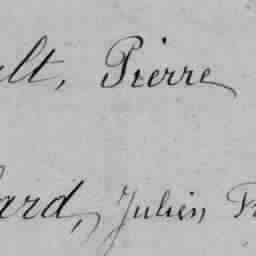 ult, Pierre
ard, Julien Fr